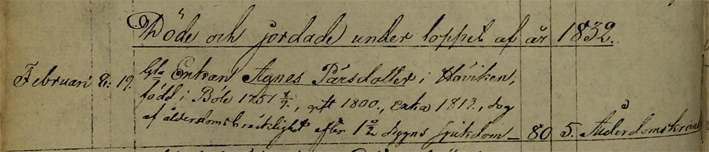 Döde och jordade under loppet af år 1832.
Februari 8. 19. Enkan Agnes Pärsdotter i Håviken,
född i Böle 1751 8/7., gift 1800., enka 1812., dog
af ålderdomsbräcklighet efter 1 1/2 dygns sjukdom – 80 5. Ålderdomskrämpor